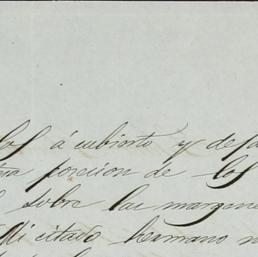 los á cubierto y de
porcion de los
sobre las margen
Mi citado hermano